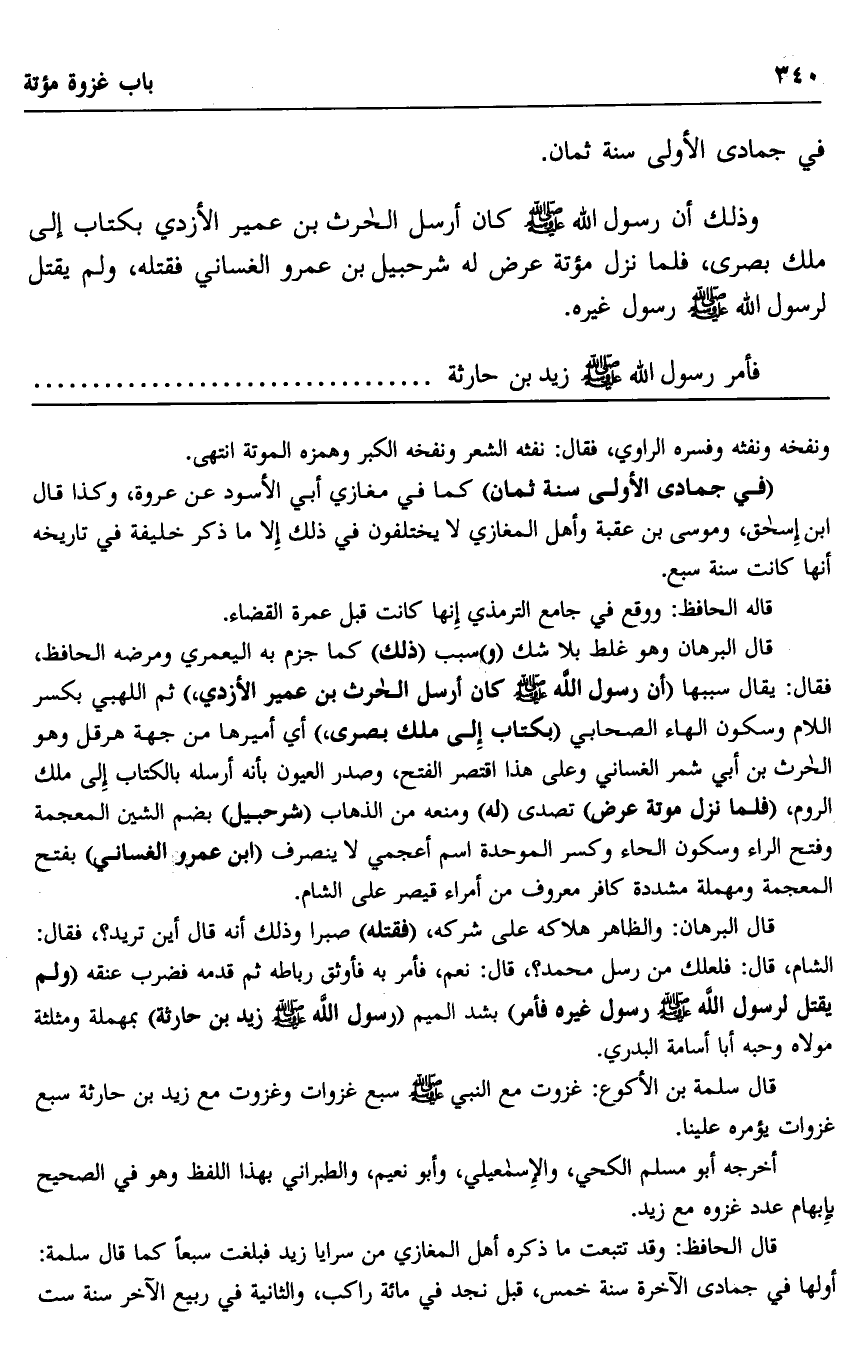 ٣٤٠ باب غزوة مؤتة
في جمادى الأولى سنة ثمان.
وذلك أن رسول الله ﷺ كان أرسل الحٰرث بن عمير الأزدي بكتاب إلى
ملك بصرى، فلما نزل مؤتة عرض له شرحبيل بن عمرو الغساني فقتله، ولم يقتل
لرسول الله ﷺ رسول غيره.
فأمر رسول الله ﷺ زيد بن حارثة ..................................
ونفخه ونفثه وفسره الراوي، فقال: نفثه الشعر ونفخه الكبر وهمزه الموتة انتهى.
(في جمادى الأولى سنة ثمان) كما في مغازي أبي الأسود عن عروة، وكذا قال
ابن إسحٰق، وموسى بن عقبة وأهل المغازي لا يختلفون في ذلك إلا ما ذكر خليفة في تاريخه
أنها كانت سنة سبع.
قاله الحافظ: ووقع في جامع الترمذي إنها كانت قبل عمرة القضاء.
قال البرهان وهو غلط بلا شك (و)سبب (ذلك) كما جزم به اليعمري ومرضه الحافظ،
فقال: يقال سببها (أن رسول اللَّه ﷺ كان أرسل الحٰرث بن عمير الأزدي،) ثم اللهبي بكسر
اللام وسكون الهاء الصحابي (بكتاب إلى ملك بصرى،) أي أميرها من جهة هرقل وهو
الحٰرث بن أبي شمر الغساني وعلى هذا اقتصر الفتح، وصدر العيون بأنه أرسله بالكتاب إلى ملك
الروم، (فلما نزل موتة عرض) تصدى (له) ومنعه من الذهاب (شرحبيل) بضم الشين المعجمة
وفتح الراء وسكون الحاء وكسر الموحدة اسم أعجمي لا ينصرف (ابن عمرو الغساني) بفتح
المعجمة ومهملة مشددة كافر معروف من أمراء قيصر على الشام.
قال البرهان: والظاهر هلاكه على شركه، (فقتله) صبرا وذلك أنه قال أين تريد؟، فقال:
الشام، قال: فلعلك من رسل محمد؟، قال: نعم، فأمر به فأوثق رباطه ثم قدمه فضرب عنقه (ولم
يقتل لرسول اللَّه ﷺ رسول غيره فأمر) بشد الميم (رسول اللَّه ﷺ زيد بن حارثة) بمهملة ومثلثة
مولاه وحبه أبا أسامة البدري.
قال سلمة بن الأكوع: غزوت مع النبي ﷺ سبع غزوات وغزوت مع زيد بن حارثة سبع
غزوات يؤمره علينا.
أخرجه أبو مسلم الكحي، والإسمٰعيلي، وأبو نعيم، والطبراني بهذا اللفظ وهو في الصحيح
بإبهام عدد غزوه مع زيد.
قال الحافظ: وقد تتبعت ما ذكره أهل المغازي من سرايا زيد فبلغت سبعاً كما قال سلمة:
أولها في جمادى الآخرة سنة خمس، قبل نجد في مائة راكب، والثانية في ربيع الآخر سنة ست